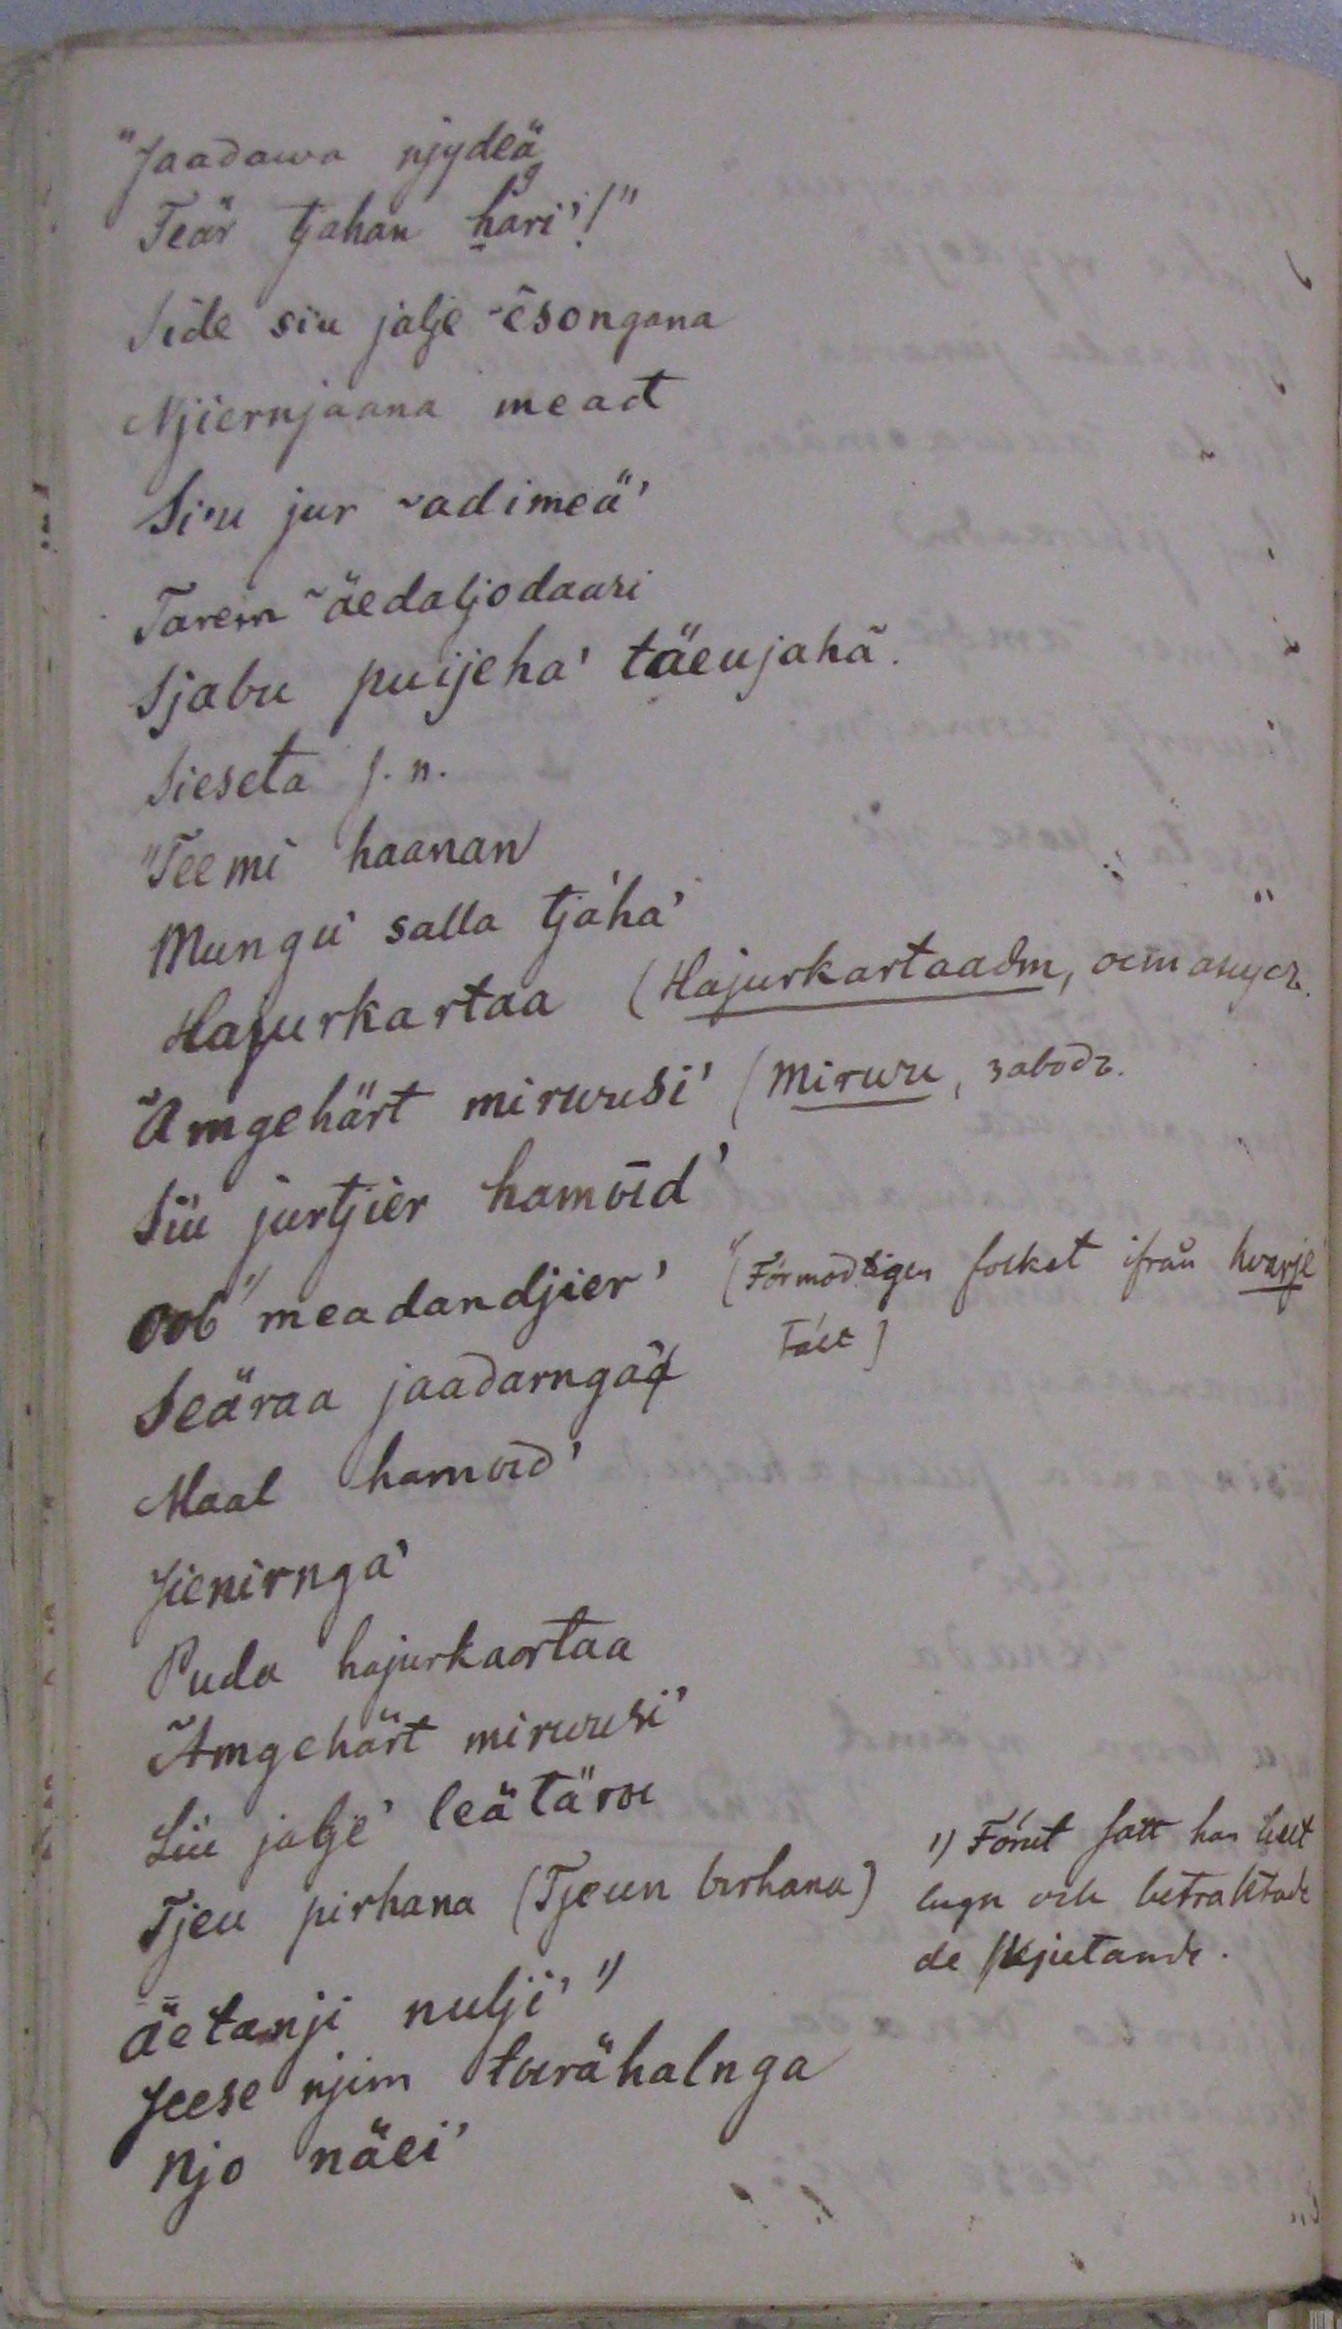 "Jaadawa njydeä
Teär tjahan hari'!"
Side siu jalje ~esongana
Njiernjaana meat
Si'u jur ~adimeä'
Tarem ~äedaljodaasi
Sjabu puijeha' täeujahã.
Sieseta s. n.
"Teemi haanan
Mungu' salla tjáha'
Hajurkartaa (Hajurkartaadm,
Ãmgehärt mirwusi' (Mirwu, заводъ.
Siu jurtjier hamōid'
Oob" meadandjier' "(Förmodligen folket ifrån hvarje
tält)
Seäraa jaadarnga'
Maal hamoid'
Jienirnga'
Puda hajurkaartaa
Ãmgehärt mirwusi'
Siu jalje' leätärw
Tjeu pirhana (Tjeun birhana)
äetanji nulji' 1)
Jeese njim tarähalnga
Njo näei'
1) Förut satt han helt
lugn och betraktade
de skjutande.